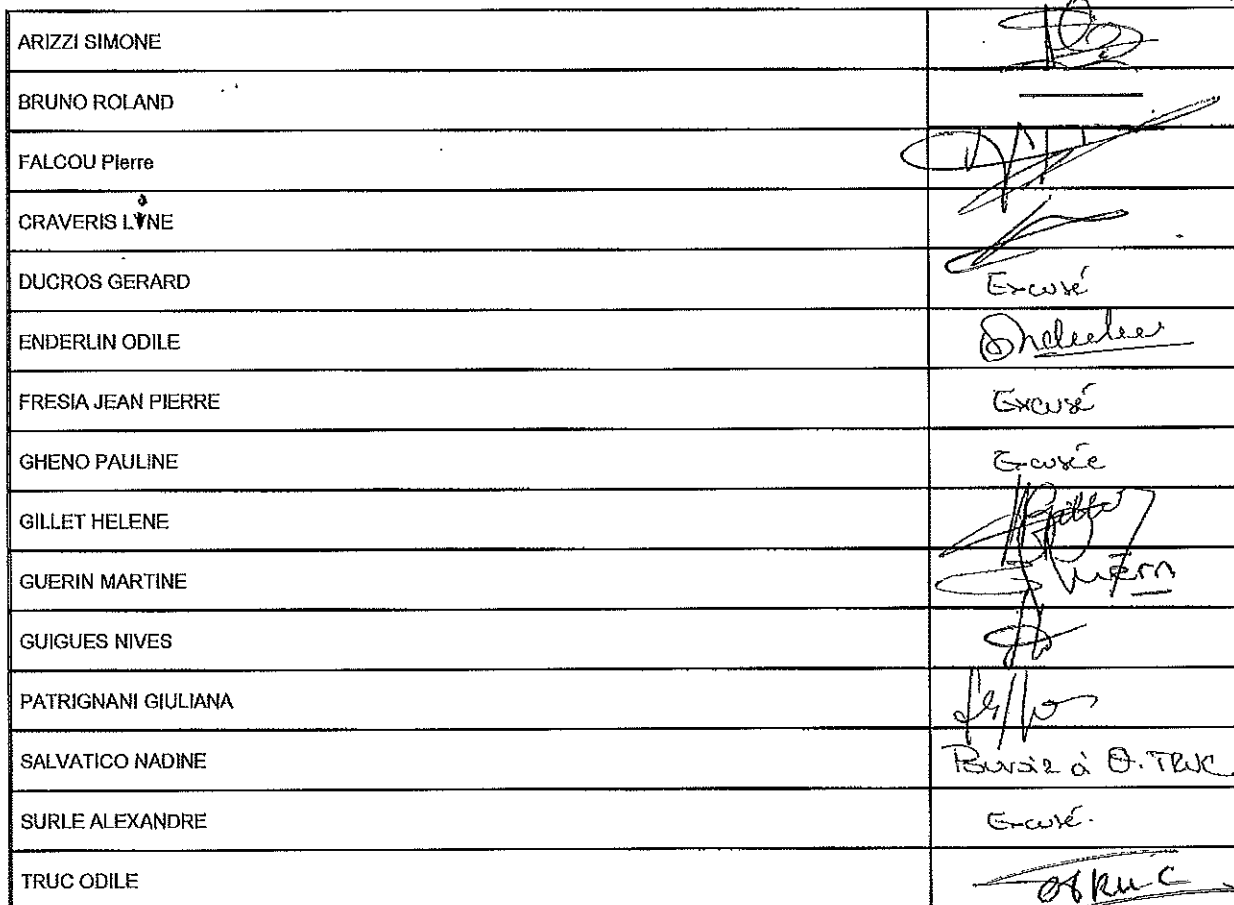 ARIZZI SIMONE
BRUNO ROLAND
FALCOU Pierre
CRAVERIS LYNE
DUCROS GERARD Excusé
ENDERLIN ODILE
FRESIA JEAN PIERRE Excusé
GHENO PAULINE Excusée
GILLET HELENE
GUERIN MARTINE
GUIGUES NIVES
PATRIGNANI GIULIANA
SALVATICO NADINE Pouvoir à O. TRUC
SURLE ALEXANDRE Excusé.
TRUC ODILE OTRUC